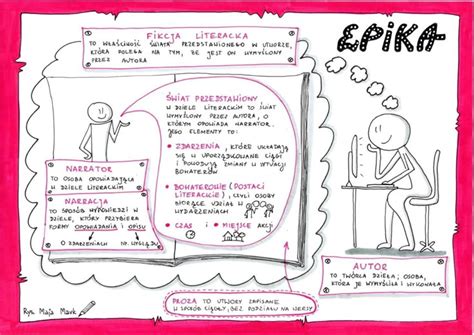 EPIKA
FIKCJA LITERACKA
TO WŁAŚCIWOŚĆ ŚWIATA PRZEDSTAWIONEGO W UTWORZE,
KTÓRA POLEGA NA TYM, ŻE JEST ON WYMYŚLONY
PRZEZ AUTORA
ŚWIAT PRZEDSTAWIONY
W DZIELE LITERACKIM TO ŚWIAT
WYMYŚLONY PRZEZ AUTORA, O
KTÓRYM OPOWIADA NARRATOR.
JEGO ELEMENTY TO:
• ZDARZENIA, KTÓRE UKŁADAJĄ
SIĘ W UPORZĄDKOWANE CIĄGI
I POWODUJĄ ZMIANY W SYTUACJI
BOHATERÓW
• BOHATEROWIE (POSTACI
LITERACKIE), CZYLI OSOBY
BIORĄCE UDZIAŁ W
WYDARZENIACH
• CZAS I • MIEJSCE AKCJI
NARRATOR
TO OSOBA OPOWIADAJĄCA
W DZIELE LITERACKIM
NARRACJA
TO SPOSÓB WYPOWIEDZI W
DZIELE, KTÓRY PRZYBIERA
FORMY OPOWIADANIA I OPISU
O ZDARZENIACH NP. WYGLĄDU
AUTOR
TO TWÓRCA DZIEŁA; OSOBA,
KTÓRA JE WYMYŚLIŁA I WYKONAŁA
PROZA TO UTWORY ZAPISANE
W SPOSÓB CIĄGŁY, BEZ PODZIAŁU NA WERSY
Rys. Maja Mavk